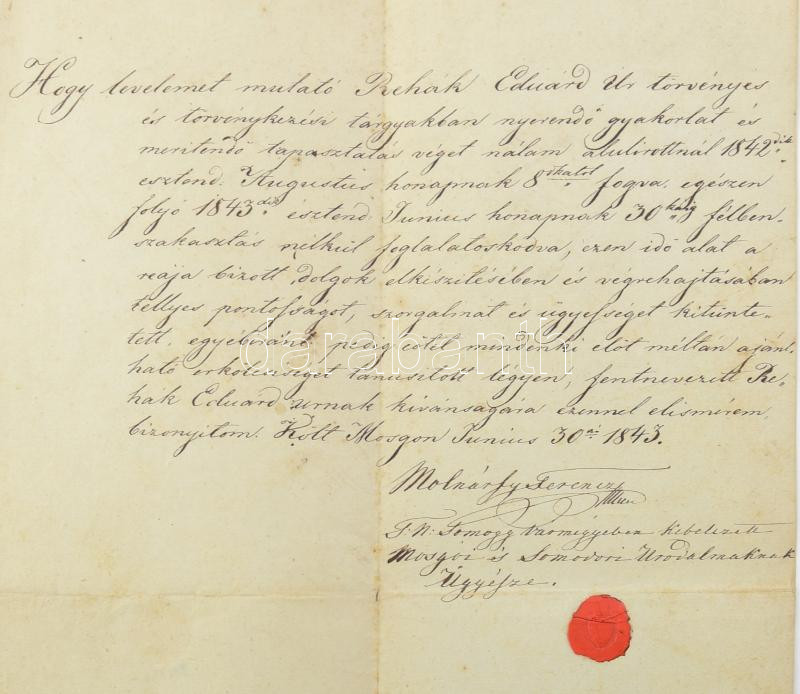 Hogy levelemet mutató Rehák Eduárd Úr törvényes
és törvénykezési targyakban nyerendő gyakorlat és
meritendő tapasztalás véget nálam alulirottnál 1842dik
esztend. Augustus honapnak 8dikától fogva, egészen
folyó 1843dik esztend: Junius honapnak 30káig félben-
szakasztás nélkül foglalatoskodva, ezen idő alat a
reája bizott dolgok elkészitésében és vegrehajtásában
tellyes pontosságot, szorgalmat és ügyességet kitünte-
tett, egyébiránt pedig mindenki elöt méltán ajánl-
ható erkölcsiséget tanusitott légyen, fentnevezett Re-
hák Eduárd urnak kivánságára ezennel elismérem,
bizonyitom. Költ Mosgon Junius 30án 1843.
Molnárfy Ferencz
T. N: Somogy Varmegyeben kebelezett
Mosgói és Somodori Urodalmaknak
Ügyésze.
darabanth